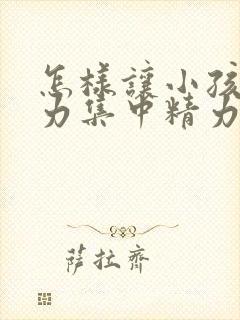 怎樣讓小孩
力集中精力
萨拉齊